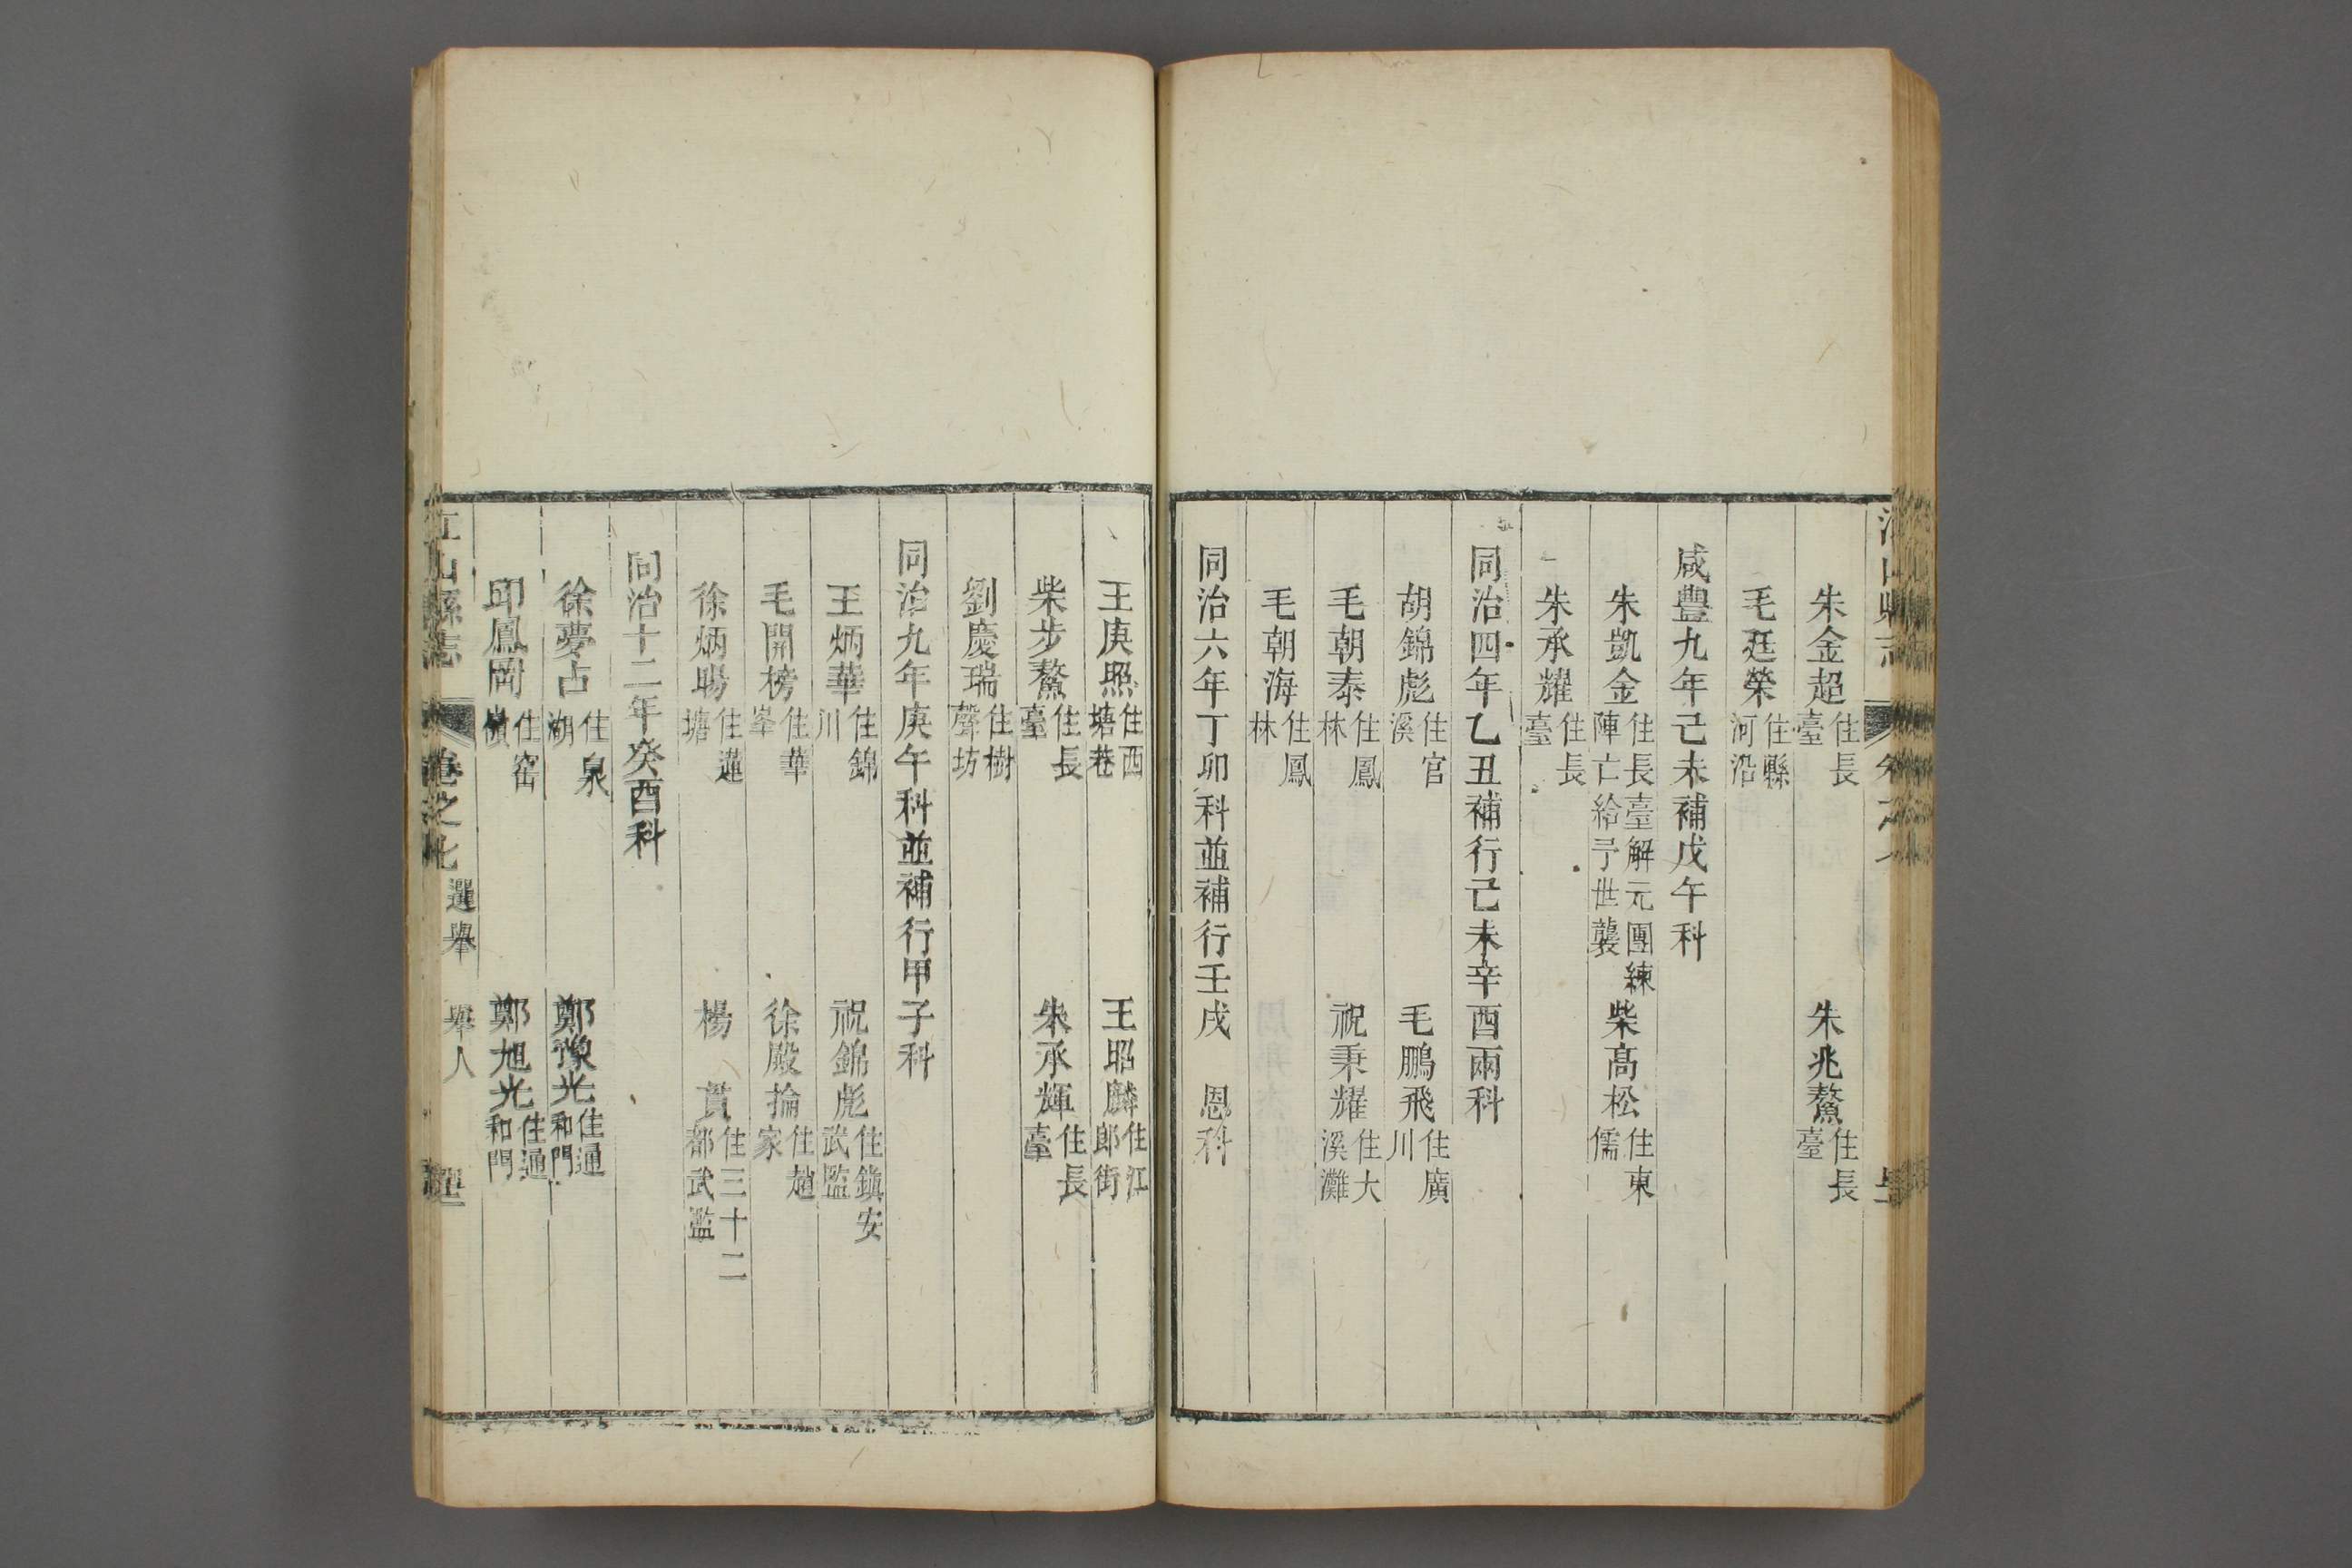 朱金超住長臺 朱兆鰲住長臺
毛廷榮住縣河沿
咸豐九年己未補戊午科
朱凱金住長臺解元團練陣亡給予世襲 柴高松住東儒
朱承耀住長臺
同治四年乙丑補行己未辛酉兩科
胡錦彪住官溪 毛鵬飛住廣川
毛朝泰住鳳林 祝秉耀住大溪灘
毛朝海住鳳林
同治六年丁卯科並補行壬戌 恩科
王庚照住西塘巷 王昭麟住江郎街
柴步鰲住長臺 朱承輝住長臺
劉慶瑞住樹聲坊
同治九年庚午科並補行甲子科
王炳華住錦川 祝錦彪住鎮安武監
毛開榜住華峯 徐殿掄住趙家
徐炳暘住蓮塘 楊 貫住三十二都武監
同治十二年癸酉科
徐夢占住泉湖 鄭豫光住通和門
邱鳳岡住窑嶺 鄭旭光住通和門
江山縣志 卷之七 選舉 舉人